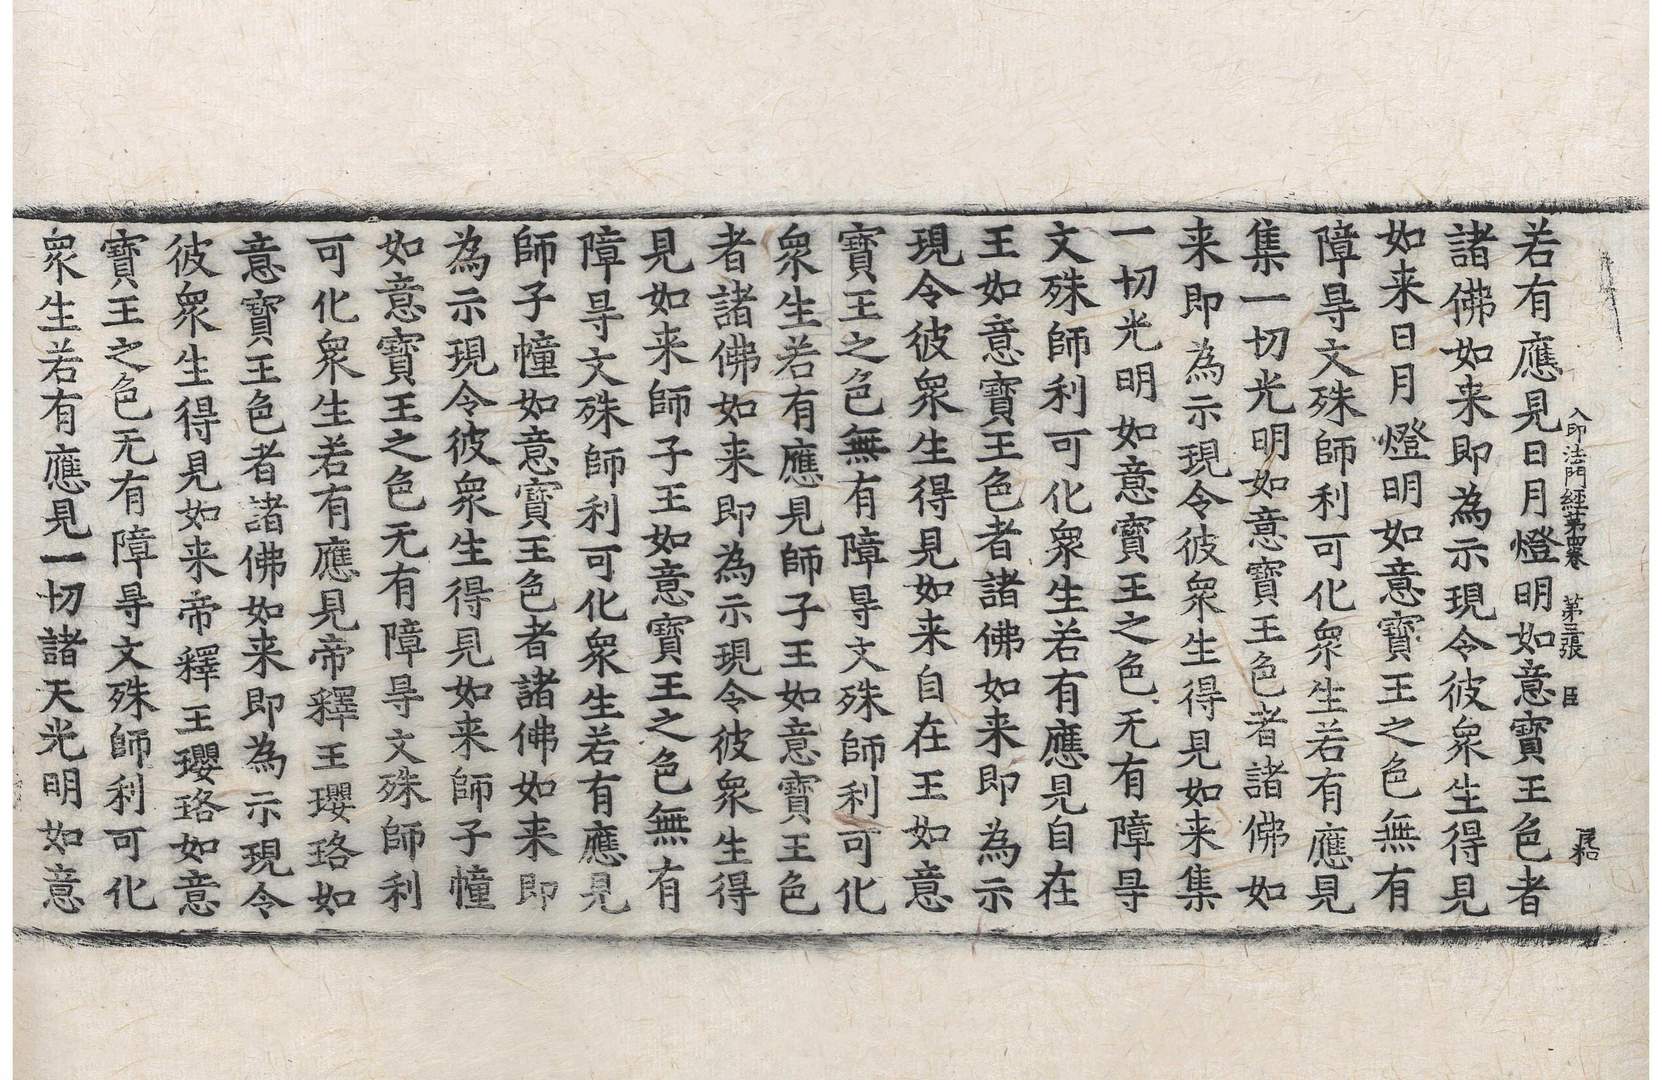 入印法門經第四卷 第三張 臣
若有應見日月燈明如意寶王色者
諸佛如来即為示現令彼衆生得見
如来日月燈明如意寶王之色無有
障㝵文殊師利可化衆生若有應見
集一切光明如意寶王色者諸佛如
来即為示現令彼衆生得見如来集
一切光明如意寶王之色无有障㝵
文殊師利可化衆生若有應見自在
王如意寶王色者諸佛如来即為示
現令彼衆生得見如来自在王如意
寶王之色無有障㝵文殊師利可化
衆生若有應見師子王如意寶王色
者諸佛如来即為示現令彼衆生得
見如来師子王如意寶王之色無有
障㝵文殊師利可化衆生若有應見
師子幢如意寶王色者諸佛如来即
為示現令彼衆生得見如来師子幢
如意寶王之色无有障㝵文殊師利
可化衆生若有應見帝釋王瓔珞如
意寶王色者諸佛如来即為示現令
彼衆生得見如来帝釋王瓔珞如意
寶王之色无有障㝵文殊師利可化
衆生若有應見一切諸天光明如意